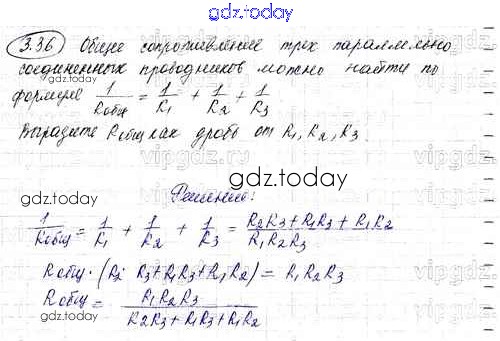 gdz.today
3.36 Общее сопротивление трёх параллельно
соединенных проводников можно найти по
формуле 1/Rобщ = 1/R1 + 1/R2 + 1/R3
Выразите Rобщ как дробь от R1, R2, R3.
gdz.today
gdz.today
Решение:
1/Rобщ = 1/R1 + 1/R2 + 1/R3 = (R2R3 + R1R3 + R1R2)/(R1R2R3)
Rобщ · (R2 R3 + R1R3 + R1R2) = R1R2R3
Rобщ = R1R2R3/(R2R3 + R1R3 + R1R2)
gdz.today
gdz.today